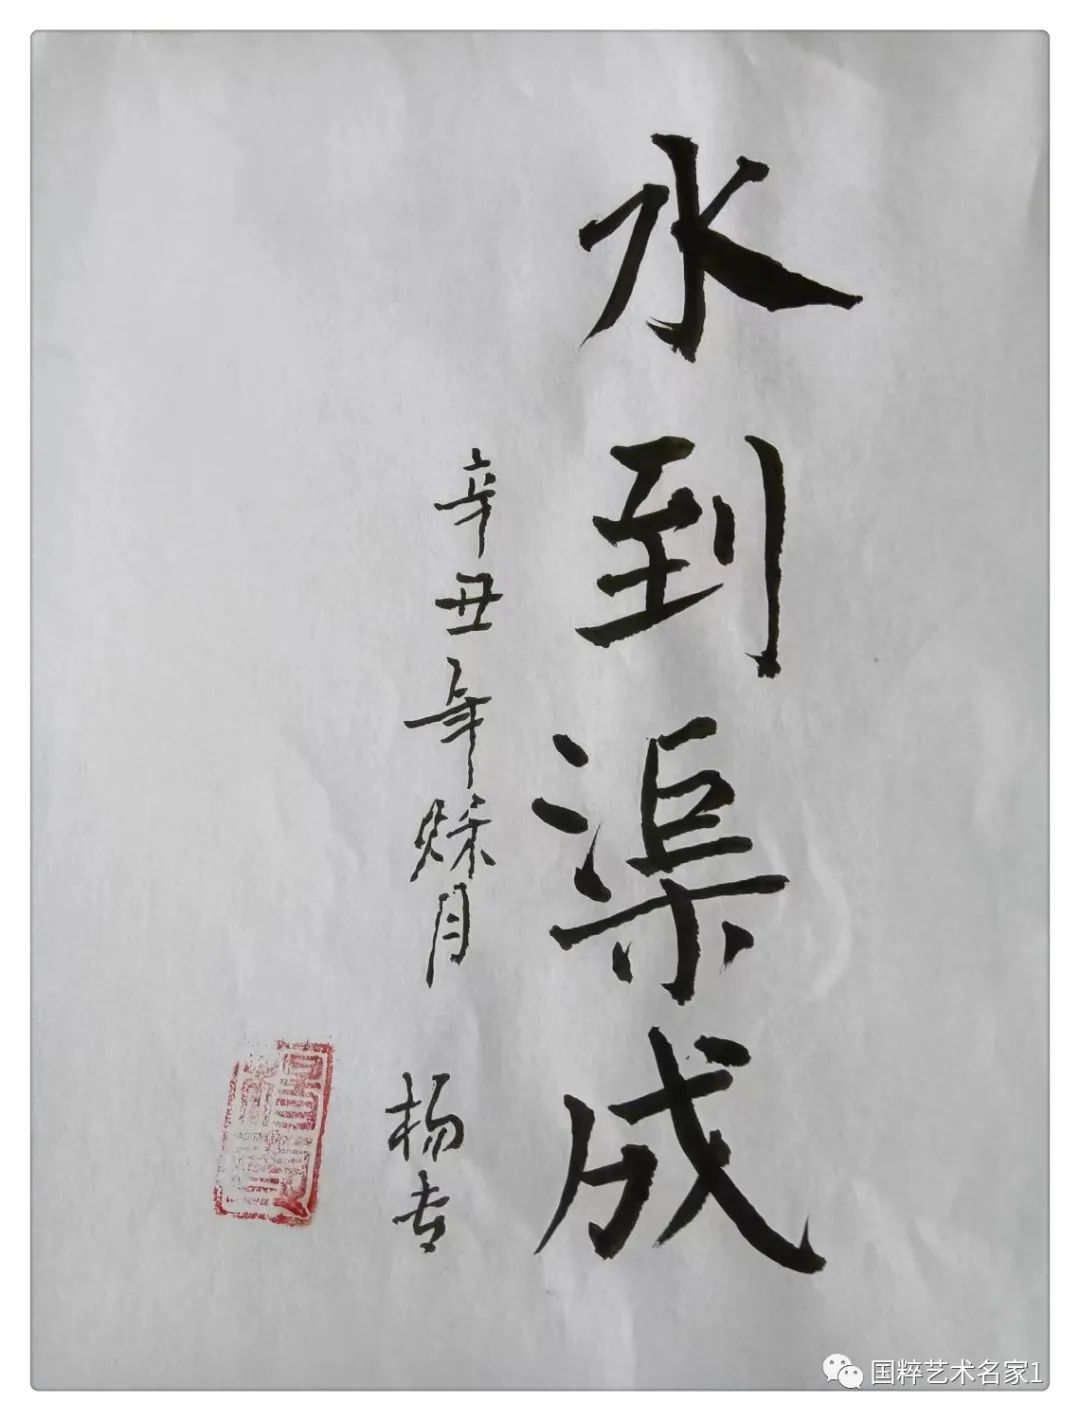 水到渠成
辛丑年秌月 杨专
国粹艺术名家1